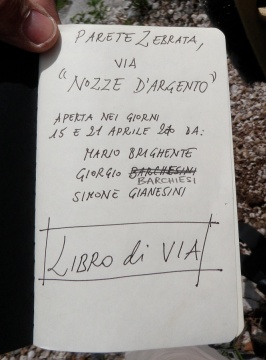 PARETE ZEBRATA,
VIA
"NOZZE D'ARGENTO"
APERTA NEI GIORNI
15 E 21 APRILE DA:
MARIO BRIGHENTE
GIORGIO BARCHESINI
BARCHIESI
SIMONE GIANESINI
LIBRO di VIA